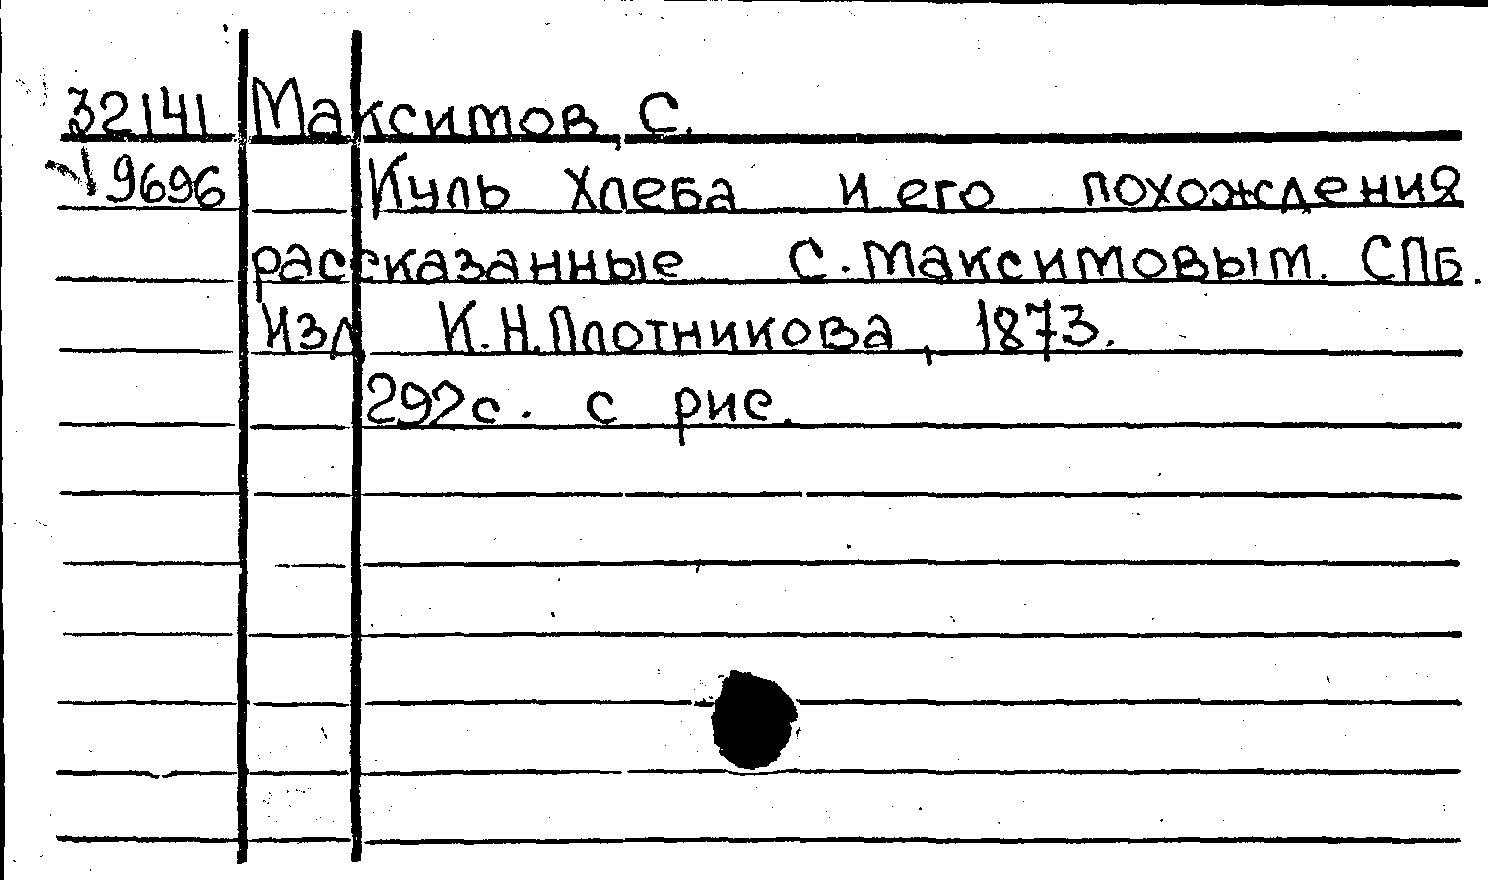 32141 Максимов, С.
√9696 Куль Хлеба и его похождения
рассказанные С. Максимовым. СПб.
Изд К.Н.Плотникова, 1873.
292с. с рис.